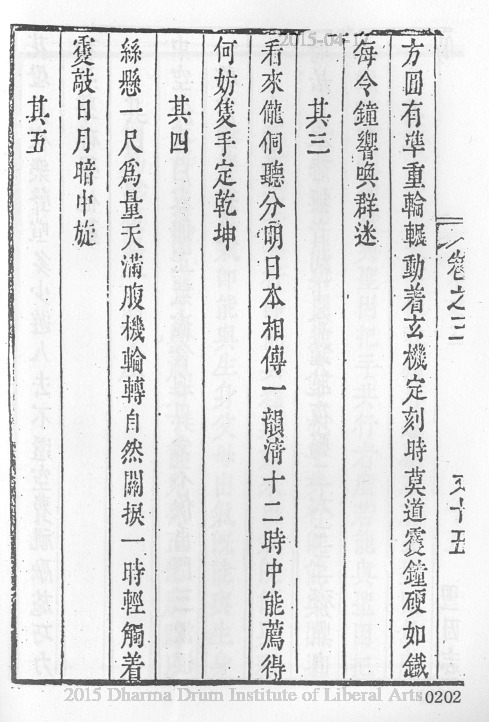 卷之三 又十五
方圓有準重輪輾動着玄機定刻時莫道鐘硬如鐵
每令鐘響喚群迷
其三
看來儱侗聽分明日本相傳一韻清十二時中能薦得
何妨隻手定乾坤
其四
絲懸一尺爲量天滿腹機輪轉自然關捩一時輕觸着
敲日月暗中旋
其五
2015 Dharma Drum Institute of Liberal Arts 0202